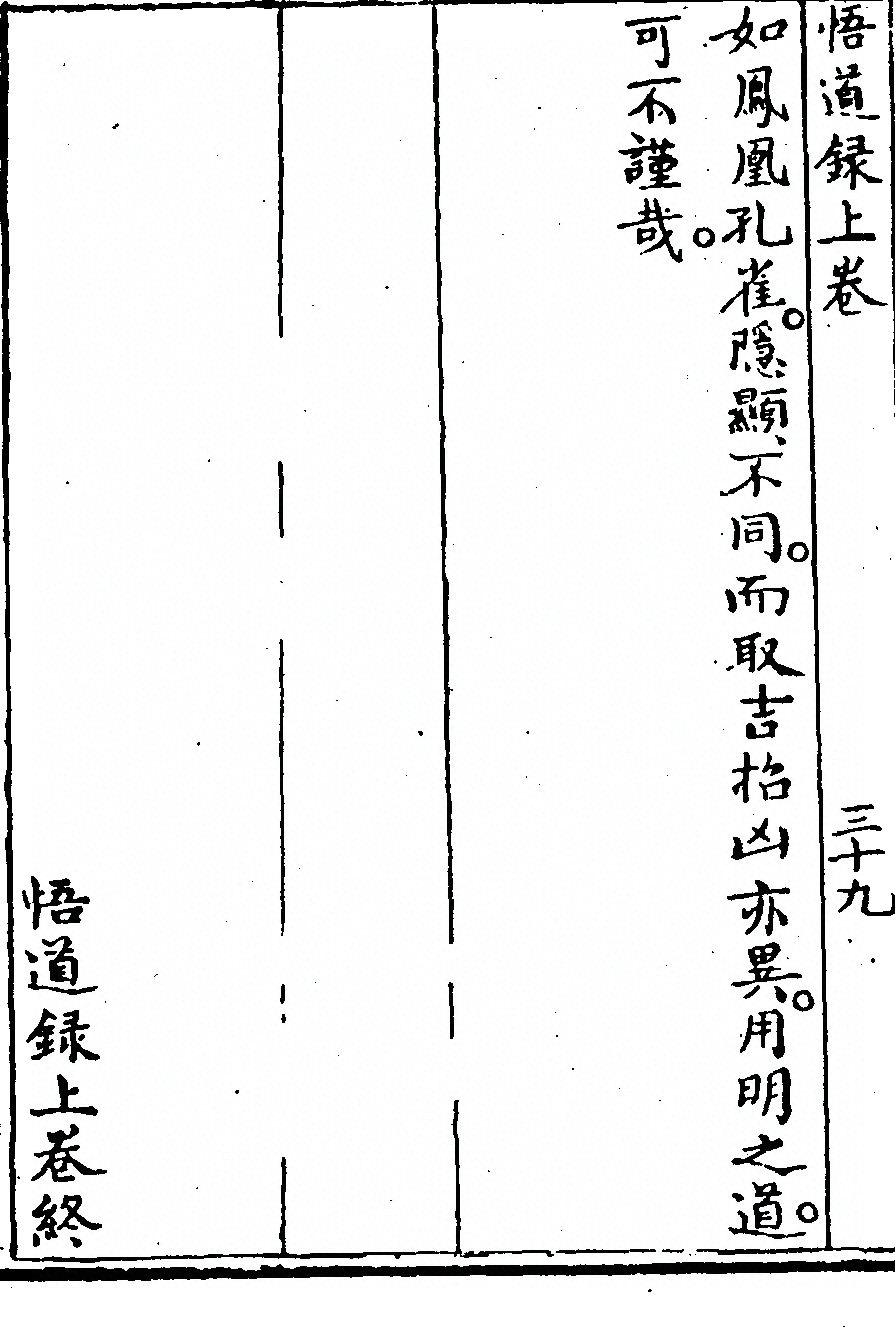 悟道録上卷
三十九
如鳳凰孔雀。隱顯不同。而取吉招凶亦異。用明之道。
可不謹哉。
悟道録上卷終